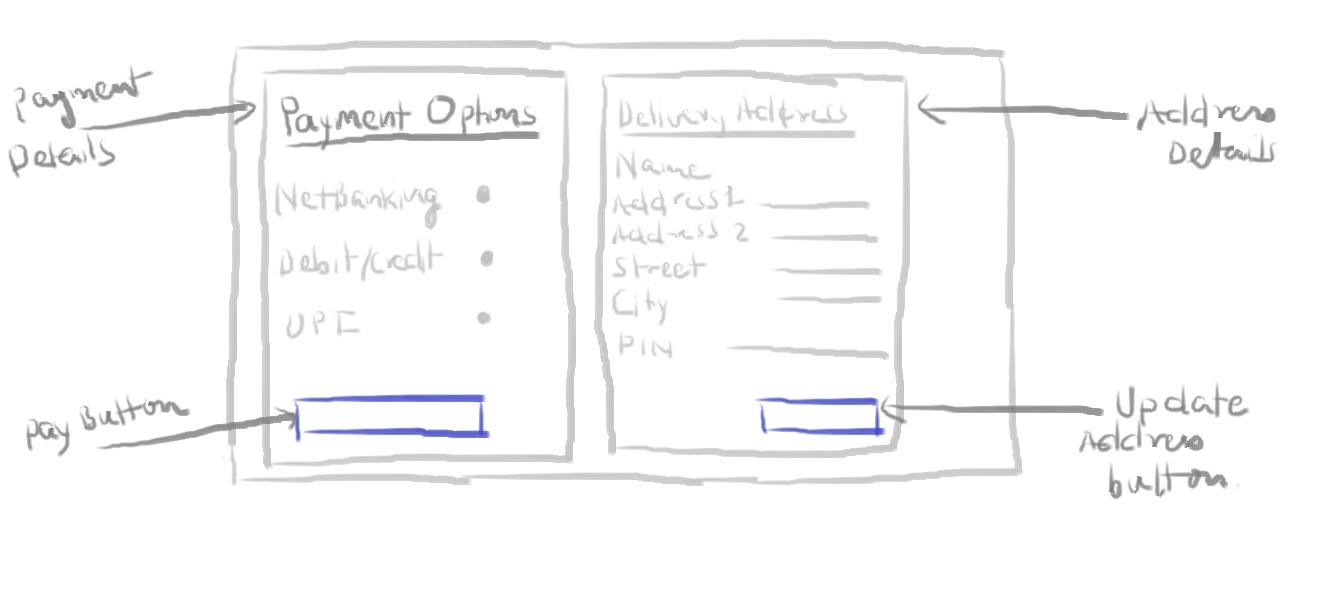 Payment
Details
Payment Options
NetBanking
Debit/Credit
UPI
Pay Button
Delivery Address
Name
Address1
Address 2
Street
City
PIN
Address
Details
Update
Address
button